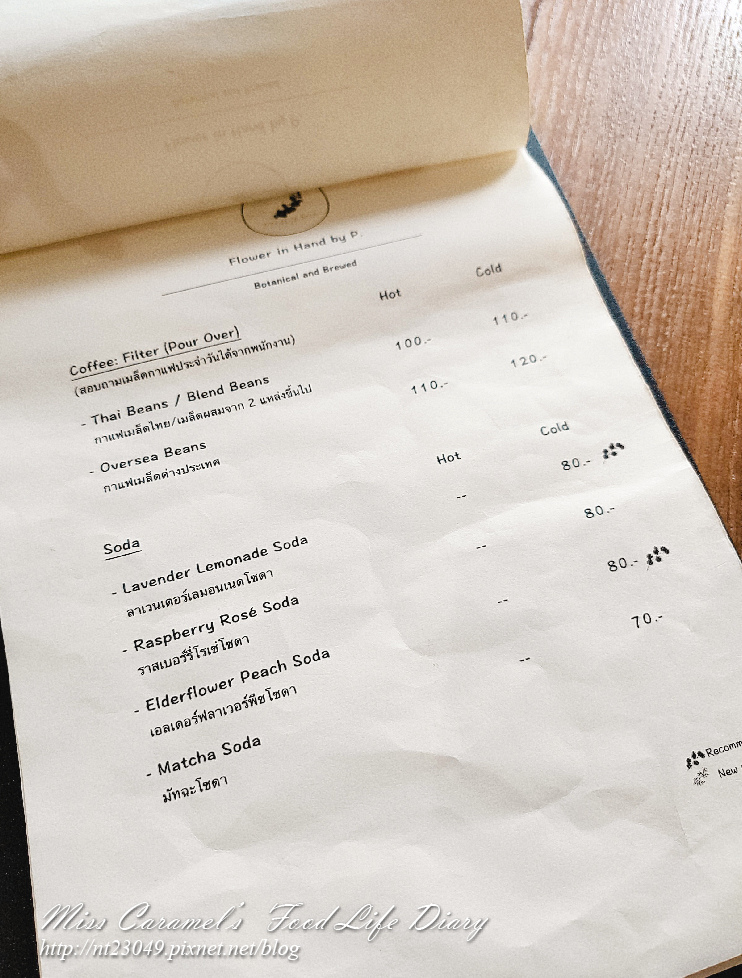 Flower in Hand by P.
Botanical and Brewed
Hot Cold
Coffee: Filter (Pour Over)
(สอบถามเมล็ดกาแฟประจำวันได้จากพนักงาน)
- Thai Beans / Blend Beans 100.- 110.-
กาแฟเมล็ดไทย/เมล็ดผสมจาก 2 แหล่งขึ้นไป
- Oversea Beans 110.- 120.-
กาแฟเมล็ดต่างประเทศ
Hot Cold
Soda
- Lavender Lemonade Soda -- 80.-
ลาเวนเดอร์เลมอนเนดโซดา
- Raspberry Rosé Soda -- 80.-
ราสเบอร์รี่โรเซ่โซดา
- Elderflower Peach Soda -- 80.-
เอลเดอร์ฟลาเวอร์พีชโซดา
- Matcha Soda -- 70.-
มัทฉะโซดา
Recomm
New
Miss Caramel's Food Life Diary
http://nt23049.pixnet.net/blog